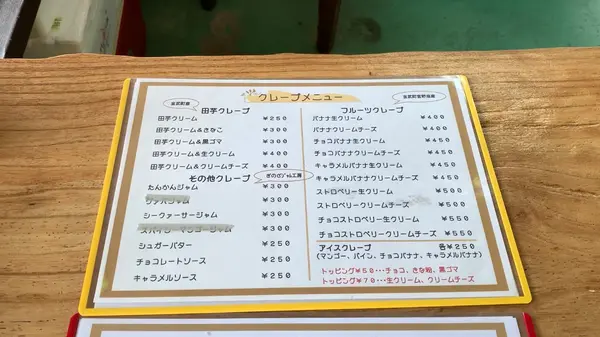 クレープメニュー
金武町産
田芋クレープ
田芋クリーム ¥250
田芋クリーム&きなこ ¥300
田芋クリーム&黒ゴマ ¥300
田芋クリーム&生クリーム ¥400
田芋クリーム&クリームチーズ ¥400
その他クレープ
ぎのざジャム工房
たんかんジャム ¥300
グァバジャム ¥300
シークァーサージャム ¥300
スパイシーマンゴージャム ¥300
シュガーバター ¥250
チョコレートソース ¥250
キャラメルソース ¥250
フルーツクレープ
バナナ生クリーム ¥400
バナナクリームチーズ ¥400
チョコバナナ生クリーム ¥450
チョコバナナクリームチーズ ¥450
キャラメルバナナ生クリーム ¥450
キャラメルバナナクリームチーズ ¥450
ストロベリー生クリーム ¥500
ストロベリークリームチーズ ¥500
チョコストロベリー生クリーム ¥550
チョコストロベリークリームチーズ ¥550
アイスクレープ 各¥250
(マンゴー、パイン、チョコバナナ、キャラメルバナナ)
トッピング¥50…チョコ、きな粉、黒ゴマ
トッピング¥70…生クリーム、クリームチーズ